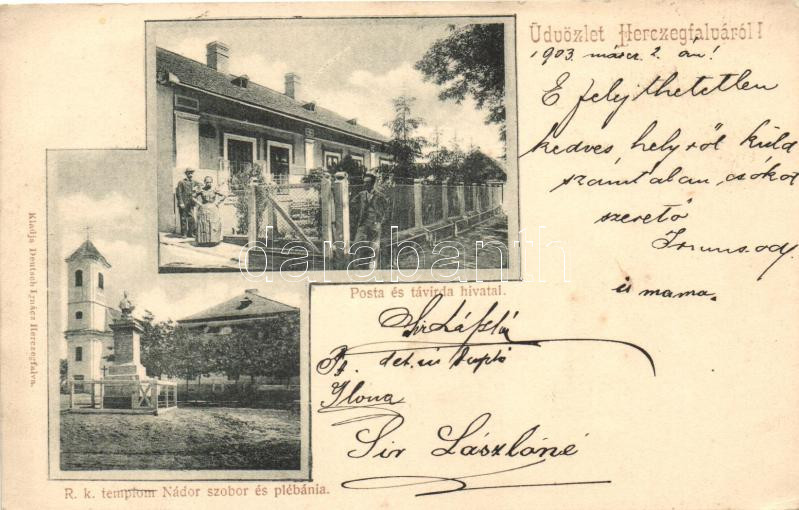 Üdvözlet Herczegfalváról!
1903. márcz. 2. án!
E felejthetetlen
kedves helyről küld
számtalan csókot
szerető
és mama.
Posta és távirda hivatal.
Sir László
Ilona
Sir Lászlóné
R. k. templom Nádor szobor és plébánia.
Kiadja Deutsch Ignácz Herczegfalva.
darabanth